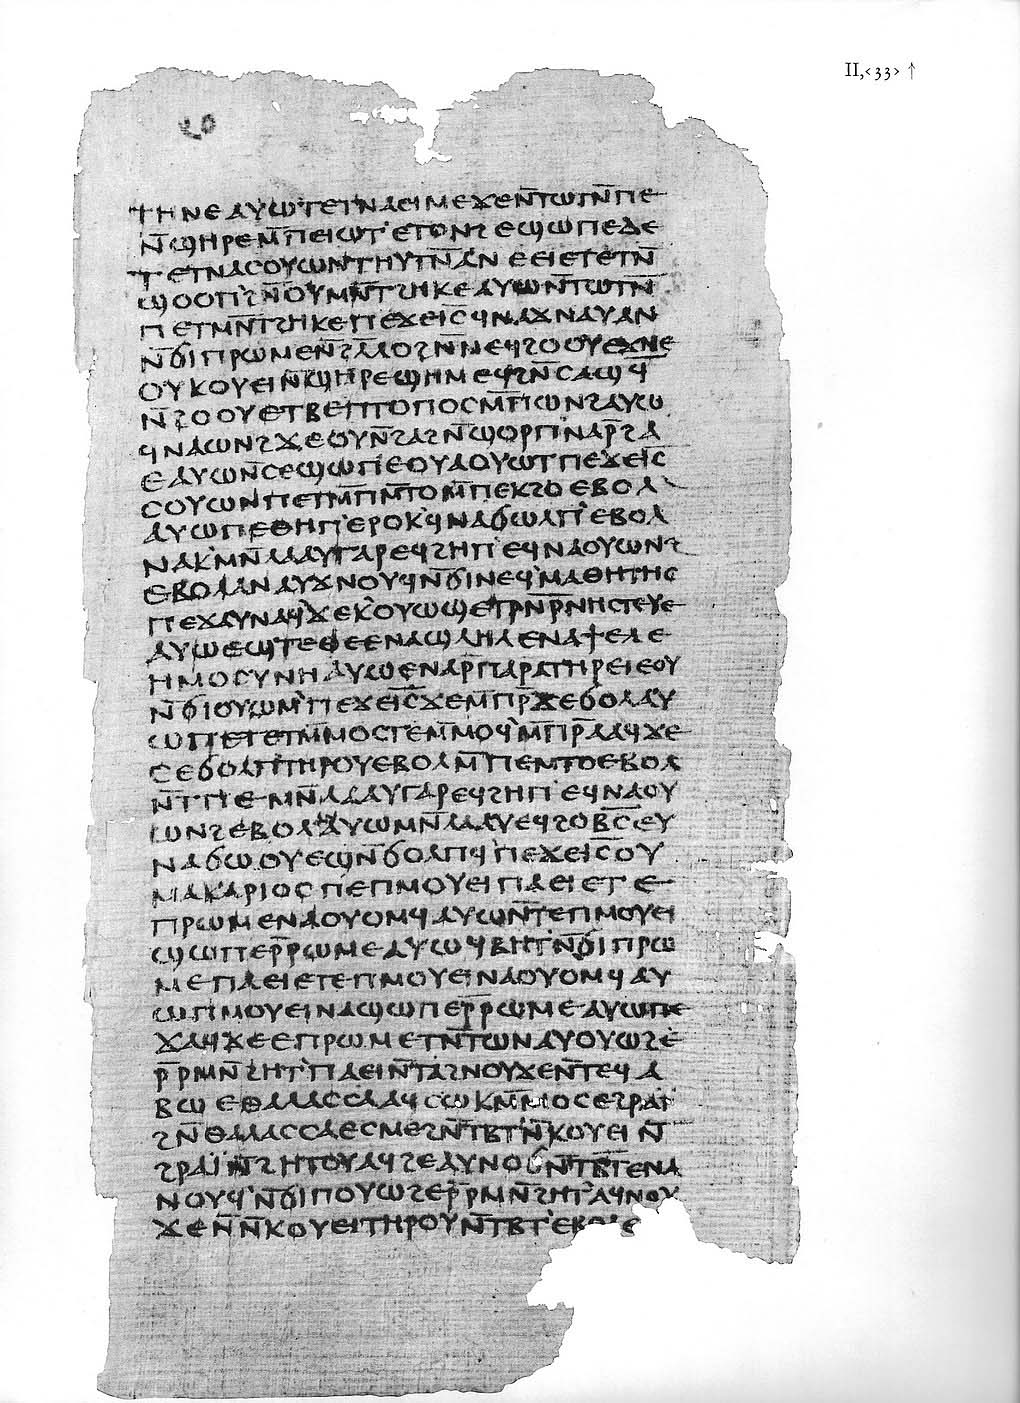 ⲧⲏⲛⲉ ⲁⲩⲱ ⲧⲉⲧⲛⲁⲉⲓⲙⲉ ϫⲉ ⲛ̄ⲧⲱⲧⲛ̄ ⲡⲉ
ⲛ̄ϣⲏⲣⲉ ⲙ̄ⲡⲉⲓⲱⲧ ⲉⲧⲟⲛϩ ⲉϣⲱⲡⲉ ⲇⲉ
ⲧⲉⲧⲛⲁⲥⲟⲩⲱⲛ ⲧⲏⲩⲧⲛ̄ ⲁⲛ ⲉⲉⲓⲉ ⲧⲉⲧⲛ̄
ϣⲟⲟⲡ ϩⲛ̄ ⲟⲩⲙⲛ̄ⲧϩⲏⲕⲉ ⲁⲩⲱ ⲛ̄ⲧⲱⲧⲛ̄
ⲡⲉ ⲧⲙⲛ̄ⲧϩⲏⲕⲉ ⲡⲉϫⲉ ⲓ̅ⲥ̅ ϥⲛⲁϫⲛⲁⲩ ⲁⲛ
ⲛ̄ϭⲓ ⲡⲣⲱⲙⲉ ⲛ̄ϩⲗ̄ⲗⲟ ϩⲛ̄ ⲛⲉϥϩⲟⲟⲩ ⲉϫⲛⲉ
ⲟⲩⲕⲟⲩⲉⲓ ⲛ̄ϣⲏⲣⲉ ϣⲏⲙ ⲉϥϩⲛ̄ ⲥⲁϣϥ̄
ⲛ̄ϩⲟⲟⲩ ⲉⲧⲃⲉ ⲡⲧⲟⲡⲟⲥ ⲙ̄ⲡⲱⲛϩ ⲁⲩⲱ
ϥⲛⲁⲱⲛϩ ϫⲉ ⲟⲩⲛ̄ ϩⲁϩ ⲛ̄ϣⲟⲣⲡ ⲛⲁⲣ̄ ϩⲁ
ⲉ ⲁⲩⲱ ⲛ̄ⲥⲉϣⲱⲡⲉ ⲟⲩⲁ ⲟⲩⲱⲧ ⲡⲉϫⲉ ⲓ̅ⲥ̅
ⲥⲟⲩⲱⲛ ⲡⲉⲧⲙ̄ⲡⲙ̄ⲧⲟ ⲙ̄ⲡⲉⲕϩⲟ ⲉⲃⲟⲗ
ⲁⲩⲱ ⲡⲉⲑⲏⲡ ⲉⲣⲟⲕ ϥⲛⲁϭⲱⲗⲡ ⲉⲃⲟⲗ
ⲛⲁⲕ ⲙⲛ̄ ⲗⲁⲁⲩ ⲅⲁⲣ ⲉϥϩⲏⲡ ⲉϥⲛⲁⲟⲩⲱⲛϩ
ⲉⲃⲟⲗ ⲁⲛ ⲁⲩϫⲛⲟⲩϥ ⲛ̄ϭⲓ ⲛⲉϥⲙⲁⲑⲏⲧⲏⲥ
ⲡⲉϫⲁⲩ ⲛⲁϥ ϫⲉ ⲕⲟⲩⲱϣ ⲉⲧⲣⲛ̄ⲣ̄ⲛⲏⲥⲧⲉⲩⲉ
ⲁⲩⲱ ⲉϣ ⲧⲉ ⲑⲉ ⲉⲛⲁϣⲗⲏⲗ ⲉⲛⲁϯ ⲉⲗⲉ
ⲏⲙⲟⲥⲩⲛⲏ ⲁⲩⲱ ⲉⲛⲁⲣ̄ⲡⲁⲣⲁⲧⲏⲣⲉⲓ ⲉⲟⲩ
ⲛ̄ϭⲓⲟⲩⲱⲙ ⲡⲉϫⲉ ⲓ̅ⲥ̅ ϫⲉ ⲙ̄ⲡⲣ̄ϫⲉ ϭⲟⲗ ⲁⲩ
ⲱ ⲡⲉⲧⲉⲧⲙ̄ⲙⲟⲥⲧⲉ ⲙ̄ⲙⲟϥ ⲙ̄ⲡⲣ̄ⲁⲁϥ ϫⲉ
ⲥⲉϭⲟⲗⲡ ⲧⲏⲣⲟⲩ ⲉⲃⲟⲗ ⲙ̄ⲡⲉⲙⲧⲟ ⲉⲃⲟⲗ
ⲛ̄ⲧⲡⲉ ⲙⲛ̄ ⲗⲁⲁⲩ ⲅⲁⲣ ⲉϥϩⲏⲡ ⲉϥⲛⲁⲟⲩ
ⲱⲛϩ ⲉⲃⲟⲗ ⲁⲛ ⲁⲩⲱ ⲙⲛ̄ ⲗⲁⲁⲩ ⲉϥϩⲟⲃ̄ⲥ̄ ⲉⲩ
ⲛⲁϭⲱ ⲟⲩⲉϣⲛ̄ ϭⲟⲗⲡϥ ⲡⲉϫⲉ ⲓ̅ⲥ̅ ⲟⲩ
ⲙⲁⲕⲁⲣⲓⲟⲥ ⲡⲉ ⲡⲙⲟⲩⲉⲓ ⲡⲁⲉⲓ ⲉⲧⲉ
ⲡⲣⲱⲙⲉ ⲛⲁⲟⲩⲟⲙϥ ⲁⲩⲱ ⲛ̄ⲧⲉ ⲡⲙⲟⲩⲉⲓ
ϣⲱⲡⲉ ⲣ̄ⲣⲱⲙⲉ ⲁⲩⲱ ϥⲃⲏⲧ ⲛ̄ϭⲓ ⲡⲣⲱ
ⲙⲉ ⲡⲁⲉⲓ ⲉⲧⲉ ⲡⲙⲟⲩⲉⲓ ⲛⲁⲟⲩⲟⲙϥ ⲁⲩ
ⲱ ⲡⲙⲟⲩⲉⲓ ⲛⲁϣⲱⲡⲉ ⲣ̄ⲣⲱⲙⲉ ⲁⲩⲱ ⲡⲉ
ϫⲁϥ ϫⲉ ⲉⲡⲣⲱⲙⲉ ⲧⲛ̄ⲧⲱⲛ ⲁⲩⲟⲩⲱϩⲉ
ⲣ̄ⲣⲙⲛ̄ϩⲏⲧ ⲡⲁⲉⲓ ⲛ̄ⲧⲁϩⲛⲟⲩϫⲉ ⲛ̄ⲧⲉϥⲁ
ⲃⲱ ⲉⲑⲁⲗⲁⲥⲥⲁ ⲁϥⲥⲱⲕ ⲙ̄ⲙⲟⲥ ⲉϩⲣⲁⲓ̈
ϩⲛ̄ ⲑⲁⲗⲁⲥⲥⲁ ⲉⲥⲙⲉϩ ⲛ̄ⲧⲃⲧ ⲛ̄ⲕⲟⲩⲉⲓ ⲛ̄
ϩⲣⲁⲓ̈ ⲛ̄ϩⲏⲧⲟⲩ ⲁϥϩⲉ ⲁⲩⲛⲟϭ ⲛ̄ⲧⲃ̄ⲧ ⲉⲛⲁ
ⲛⲟⲩϥ ⲛ̄ϭⲓ ⲡⲟⲩⲱϩⲉ ⲣ̄ⲣⲙⲛ̄ϩⲏⲧ ⲁϥⲛⲟⲩ
ϫⲉ ⲛ̄ⲛ̄ⲕⲟⲩⲉⲓ ⲧⲏⲣⲟⲩ ⲛ̄ⲧⲃⲧ ⲉⲃⲟⲗ ⲉ
II,<33> ↑